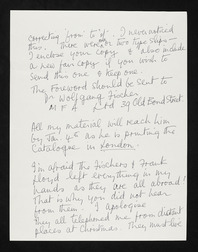 correcting from to "of". I never noticed
this. There were two type slips –
I enclose your copy & also include
a new fair copy if you wish to
send this one & keep one.
The Foreword should be sent to
Dr Wolfgang Fischer
M F A Ltd 39 Old Bond Street
All my material will reach him
by Jan. 4th as he is printing the
Catalogue in London.
I'm afraid the Fischers & Frank
Lloyd left everything in my
hands as they are all abroad!
That is why you did not hear
from them. I apologise
They all telephoned me from distant
places at Christmas. They must love